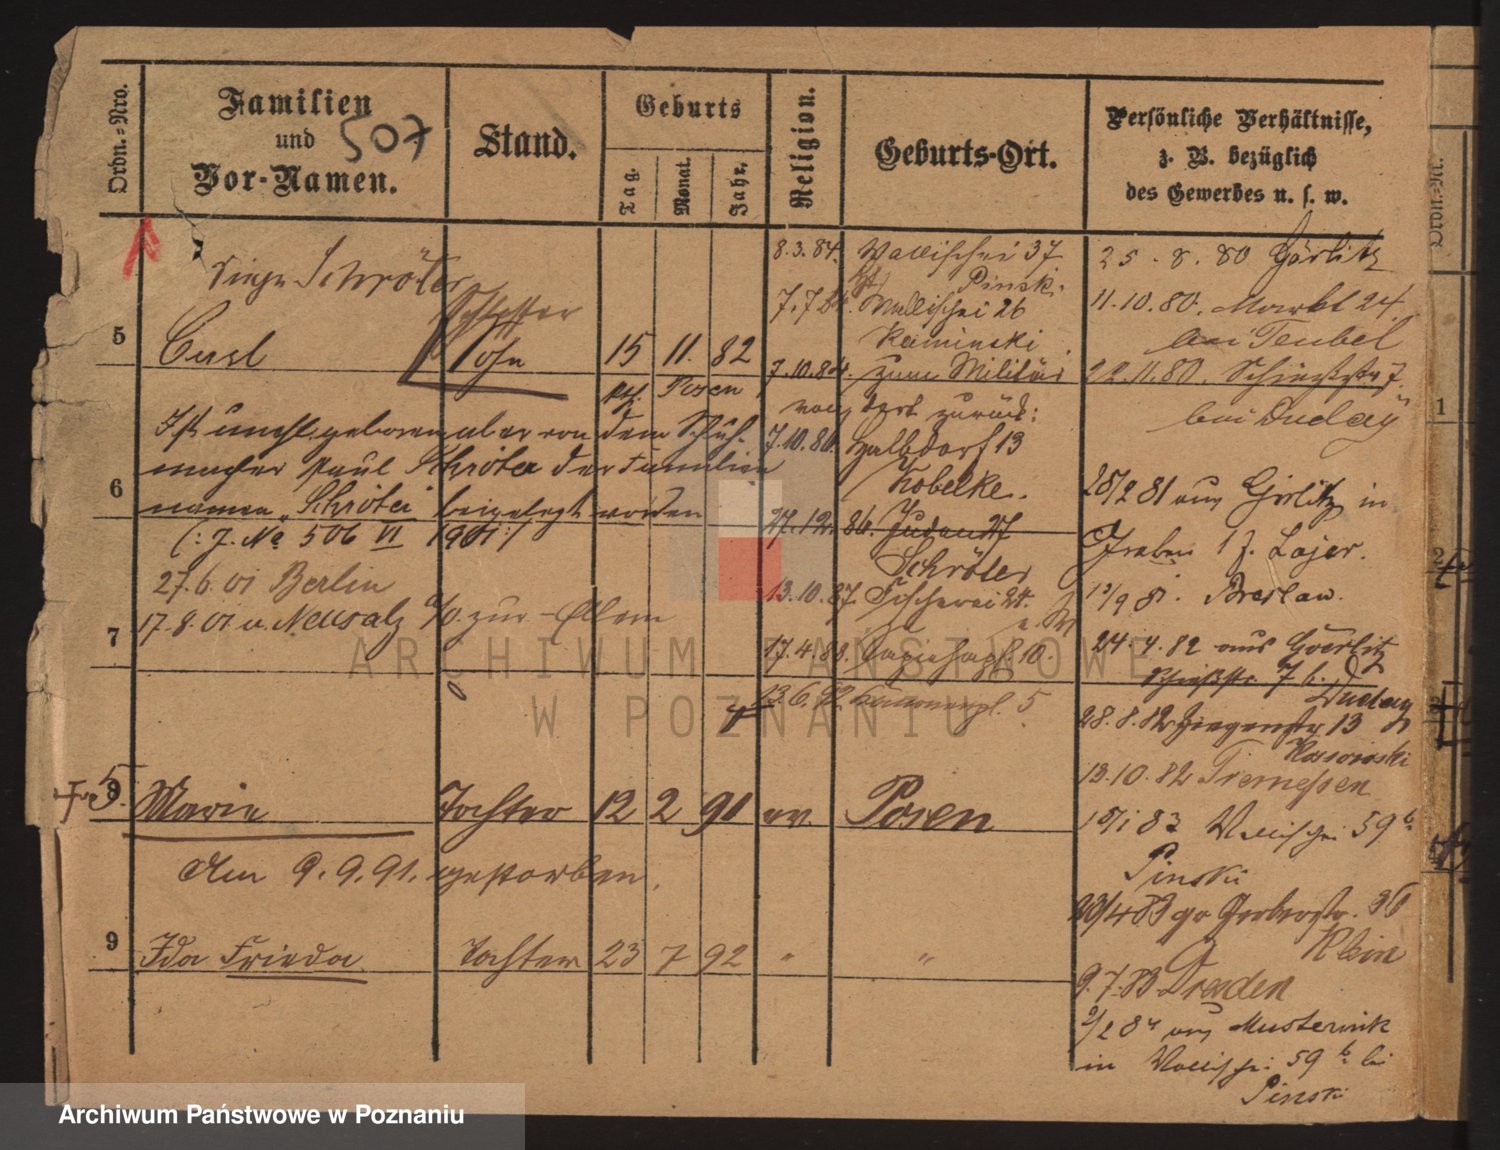 Ordn.=Nro.
Familien
und
Vor-Namen.
507
Stand.
Geburts
Tag.
Monat.
Jahr.
Religion.
Geburts-Ort.
Persönliche Verhältnisse,
z. B. bezüglich
des Gewerbes u. s. w.
Schröter
5
Carl
Sohn
15 11. 82
Posen
Ist unehl. geboren aber von dem Schuh-
macher Paul Schröter der Familien
6
namen Schröter beigelegt worden
(: J. No 506 VI 1901 :)
27.6.01 Berlin
17.8.01 v. Neusalz zur Eltern
7
8
Marie
Tochter
12 2 91
ev.
Posen
Am 9.9.91. gestorben.
9
Ida Frieda
Tochter
23 7 92
"
"
8.3.84. Wallischei 37
Pinski
7.7.84. Wallischei 26
Kaminski
7.10.84. zum Militär
von dort zurück:
7.10.86. Halbdorf 13
Kobelke.
27.12.86. Juden 27
Schröter
13.10.87. Fischerei 24.
17.4.88. 10.
13.6.92. 5
25.8.80 Görlitz
11.10.80. Markt 24.
bei Teubel
22.11.80. Schießstr 7.
bei Duday
28/2 81 aus Görlitz in
Graben 1 J.
/9 81. Breslau.
24.4.82 aus Goerlitz
Schießstr 7 b.
Duday
28.8.82 Ziegenstr 13
13.10.82 Tremessen
15/1 83 Wallischei 59 b.
Pinski
23/4 83 gr Gerberstr. 36
Klein
9.7.83 Dresden
2/2 84 aus
in Wallischei 59 b. bei
Pinski
Ordn.=Nr.
1
2
ARCHIWUM PAŃSTWOWE
W POZNANIU
Archiwum Państwowe w Poznaniu